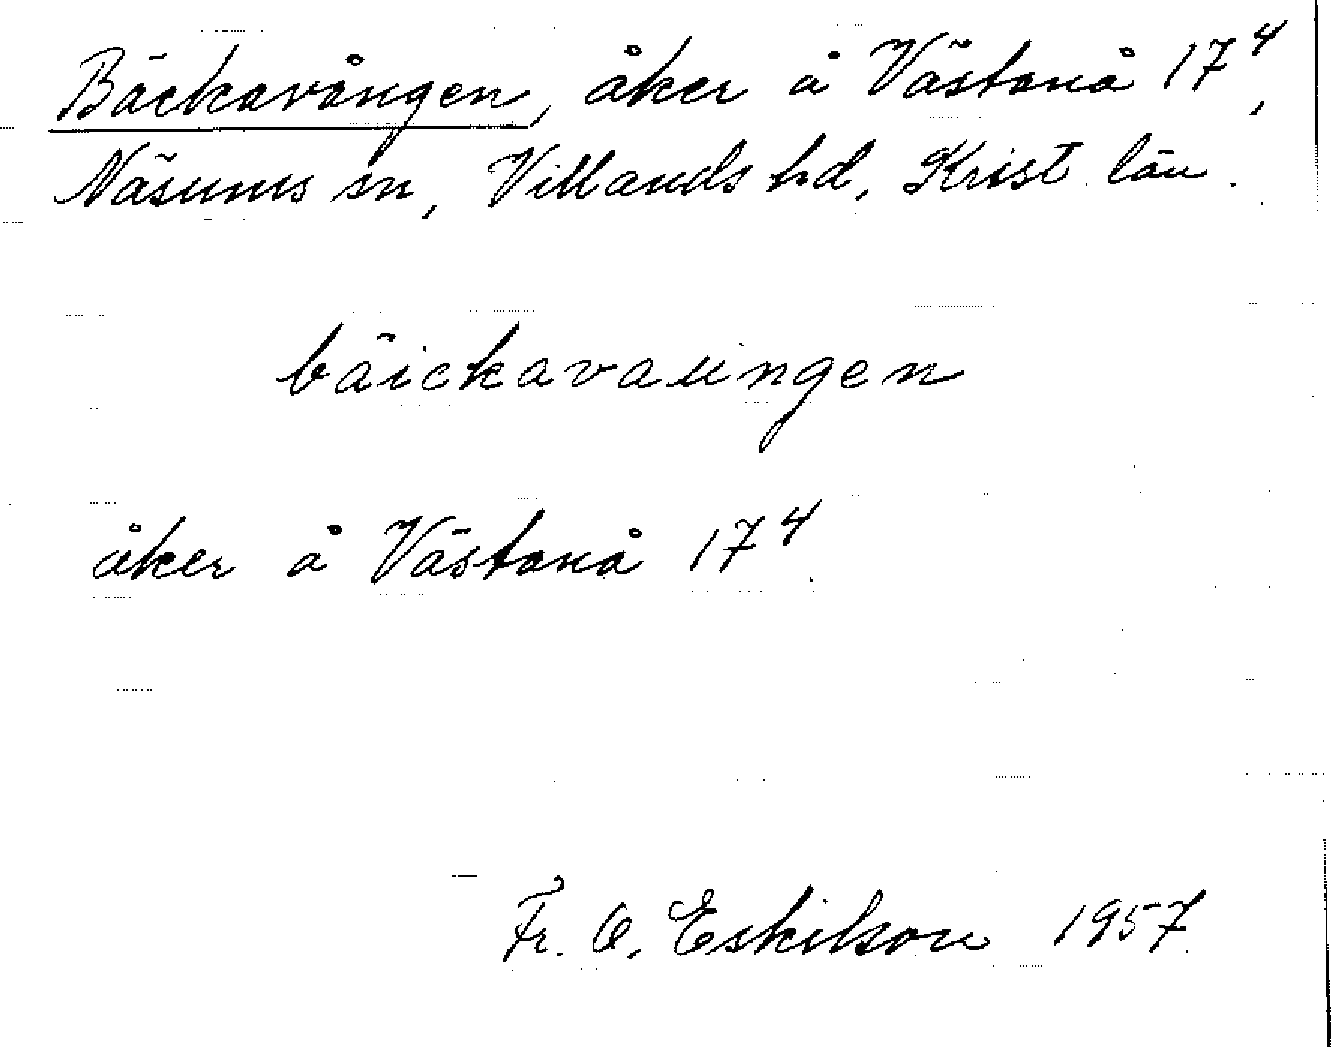 Bäckavången, åker å Västanå 17⁴,
Näsums sn, Villands hd, Krist. län.
bäickavaungen
åker å Västanå 17⁴.
Fr. O. Eskilson 1957.